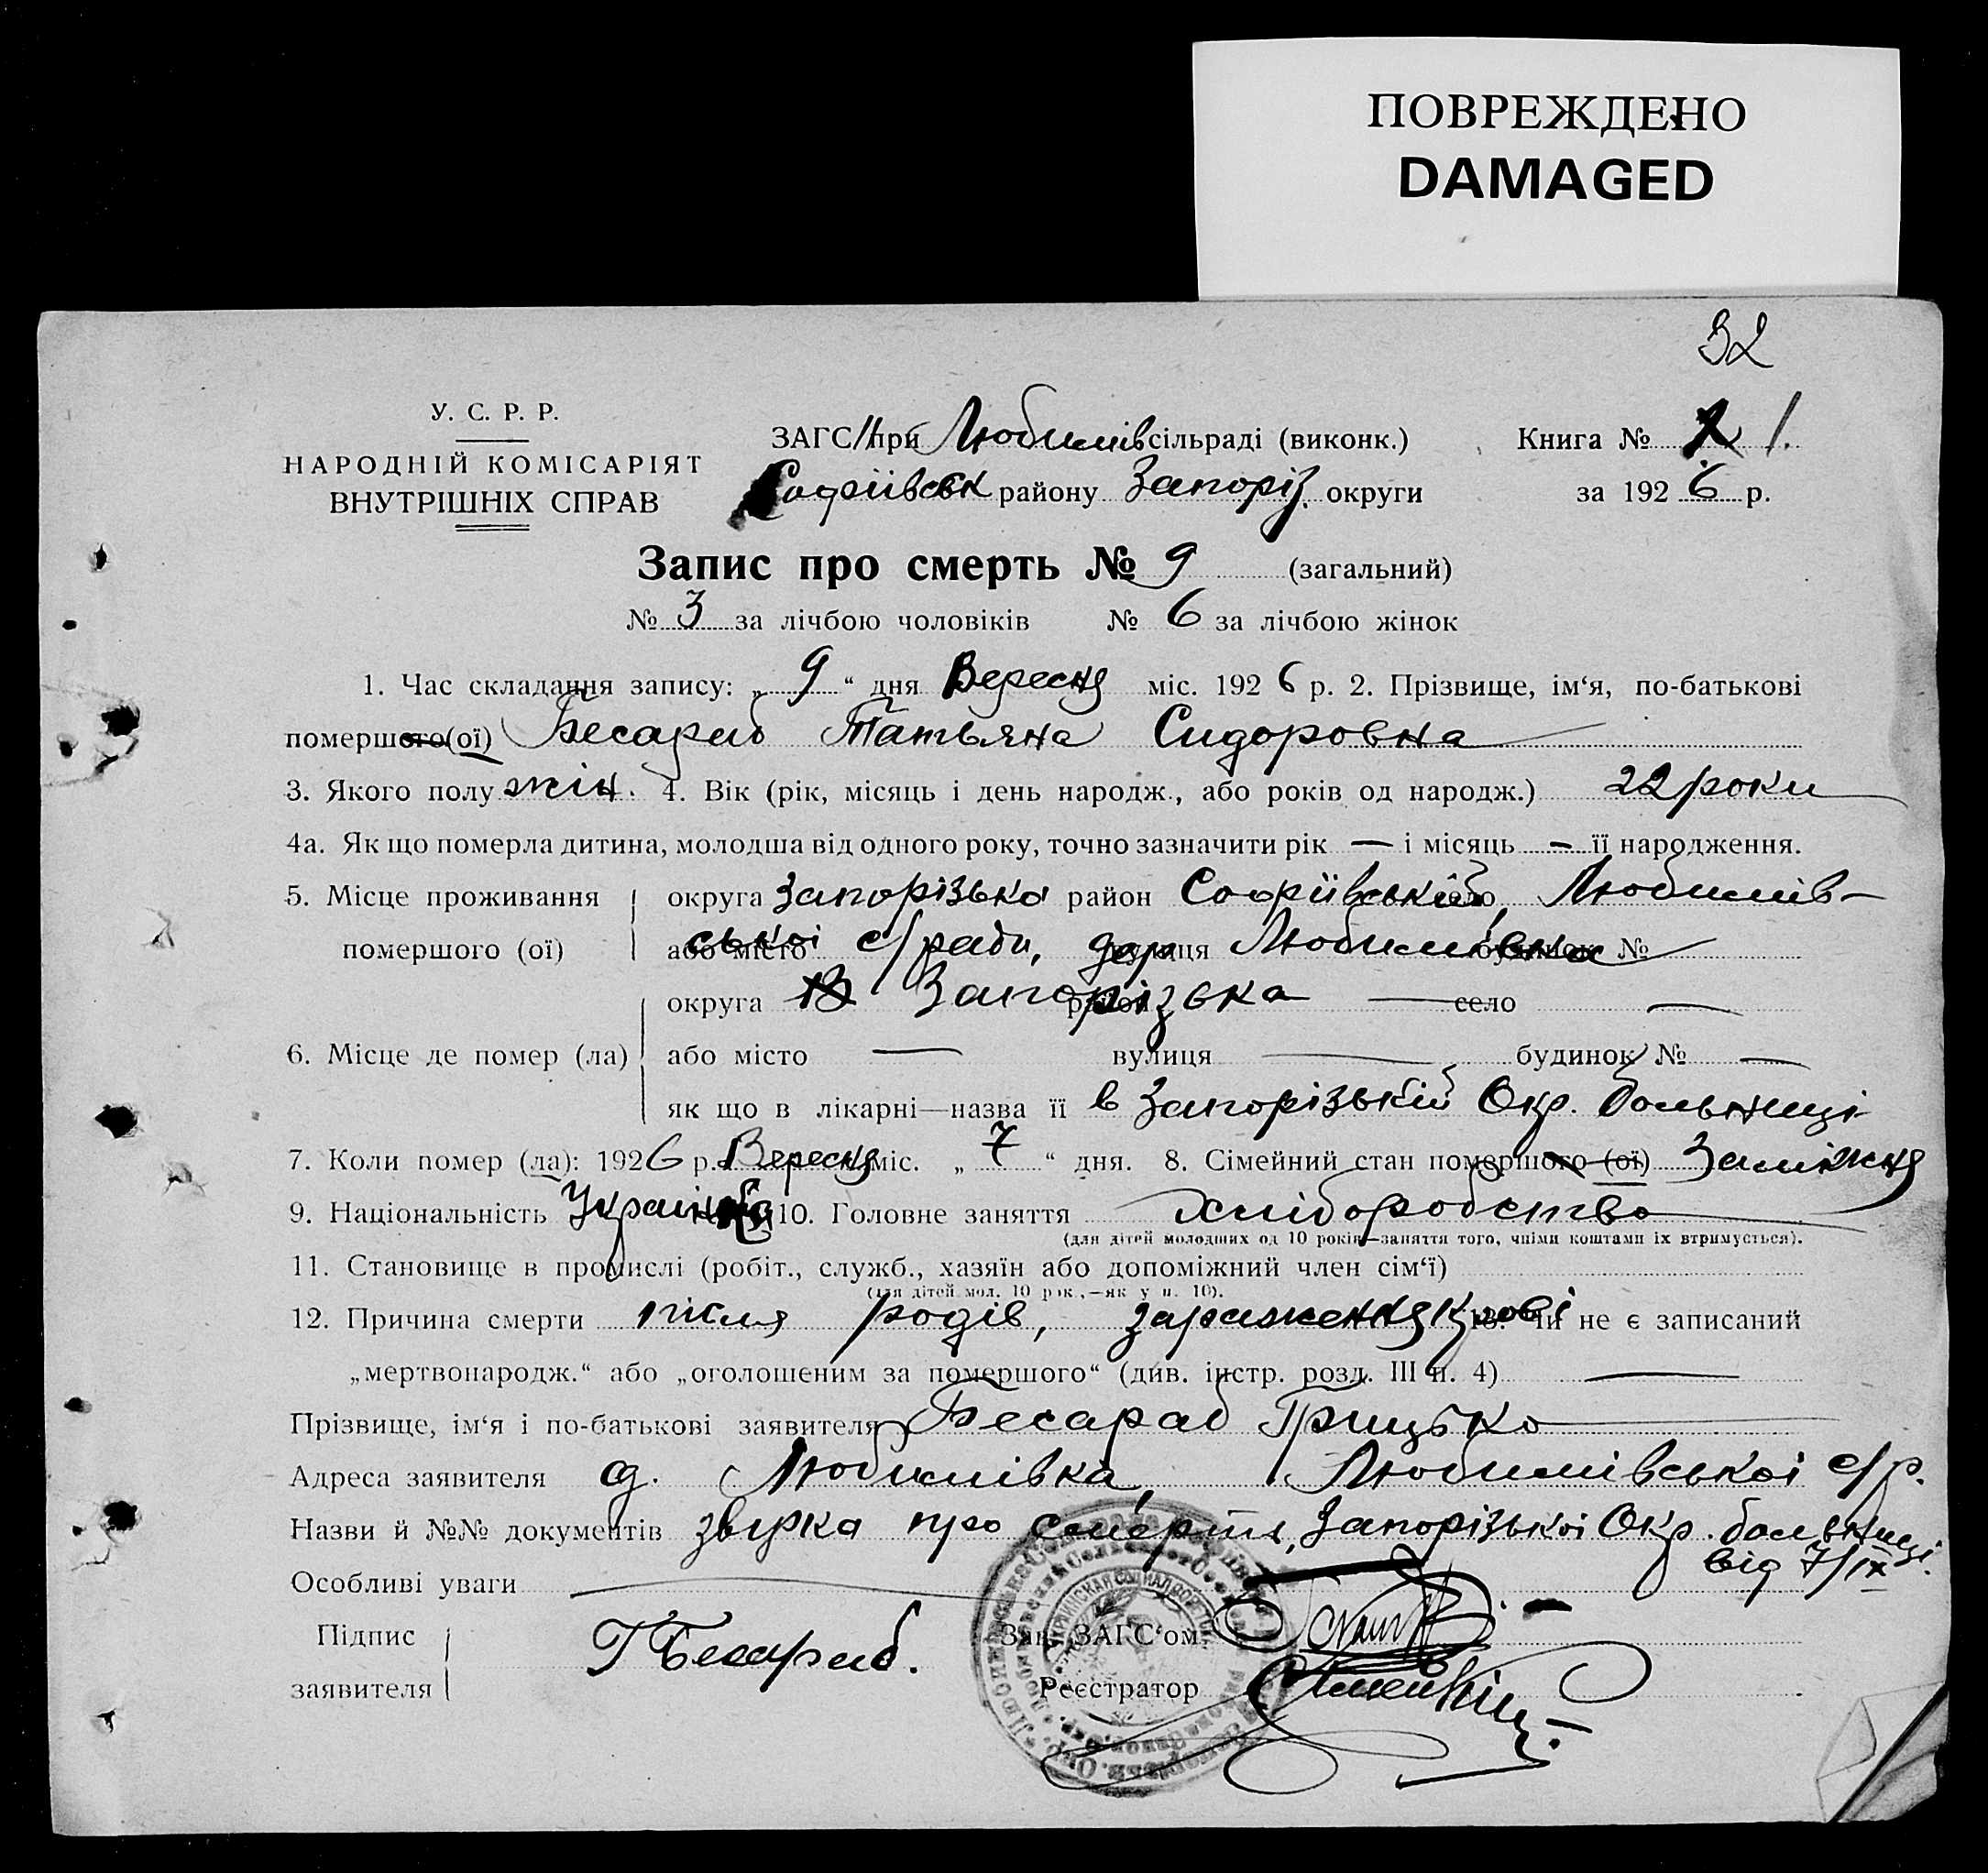 ПОВРЕЖДЕНО
DAMAGED
32
У. С. Р. Р.
НАРОДНІЙ КОМІСАРІЯТ
ВНУТРІШНІХ СПРАВ
ЗАГС при Любимівсільраді (виконк.) Книга № 1.
Софіївськ району Запоріз. округи за 1926 р.
Запис про смерть № 9 (загальний)
№ 3 за лічбою чоловіків № 6 за лічбою жінок
1. Час складання запису: „9“ дня Вересня міс. 1926 р. 2. Прізвище, ім‘я, по-батькові
помершого(ої) Бесараб Татьяна Сидоровна
3. Якого полу жін. 4. Вік (рік, місяць і день народж., або років од народж.) 22 роки
4а. Як що померла дитина, молодша від одного року, точно зазначити рік — і місяць — її народження.
5. Місце проживання округа Запорізька район Софіївський, село Любимів-
помершого (ої) або місто ської с/ради, вулиця дер Любимівка будинок №
округа Запорізька район — село —
6. Місце де помер (ла) або місто — вулиця — будинок № —
як що в лікарні—назва її в Запорізькій Окр. больниці
7. Коли помер (ла): 1926 р. Вересня міс. „7“ дня. 8. Сімейний стан помершого (ої) Заміжня
9. Національність Українка 10. Головне заняття хліборобство
(для дітей молодших од 10 років—заняття того, чиїми коштами їх втримується).
11. Становище в промислі (робіт., служб., хазяїн або допоміжний член сім‘ї)
(для дітей мол. 10 рок.,—як у п. 10).
12. Причина смерти після родів, зараження крові 13. Чи не є записаний
„мертвонародж.“ або „оголошеним за помершого“ (див. інстр. розд. III п. 4) —
Прізвище, ім‘я і по-батькові заявителя Бесараб Грицько
Адреса заявителя с. Любимівка, Любимівської с/р.
Назви й №№ документів звірка про смерть, Запорізької Окр. больниці
від 7/ІХ
Особливі уваги
Підпис Г Бесараб. Зав. ЗАГС‘ом
заявителя Реєстратор